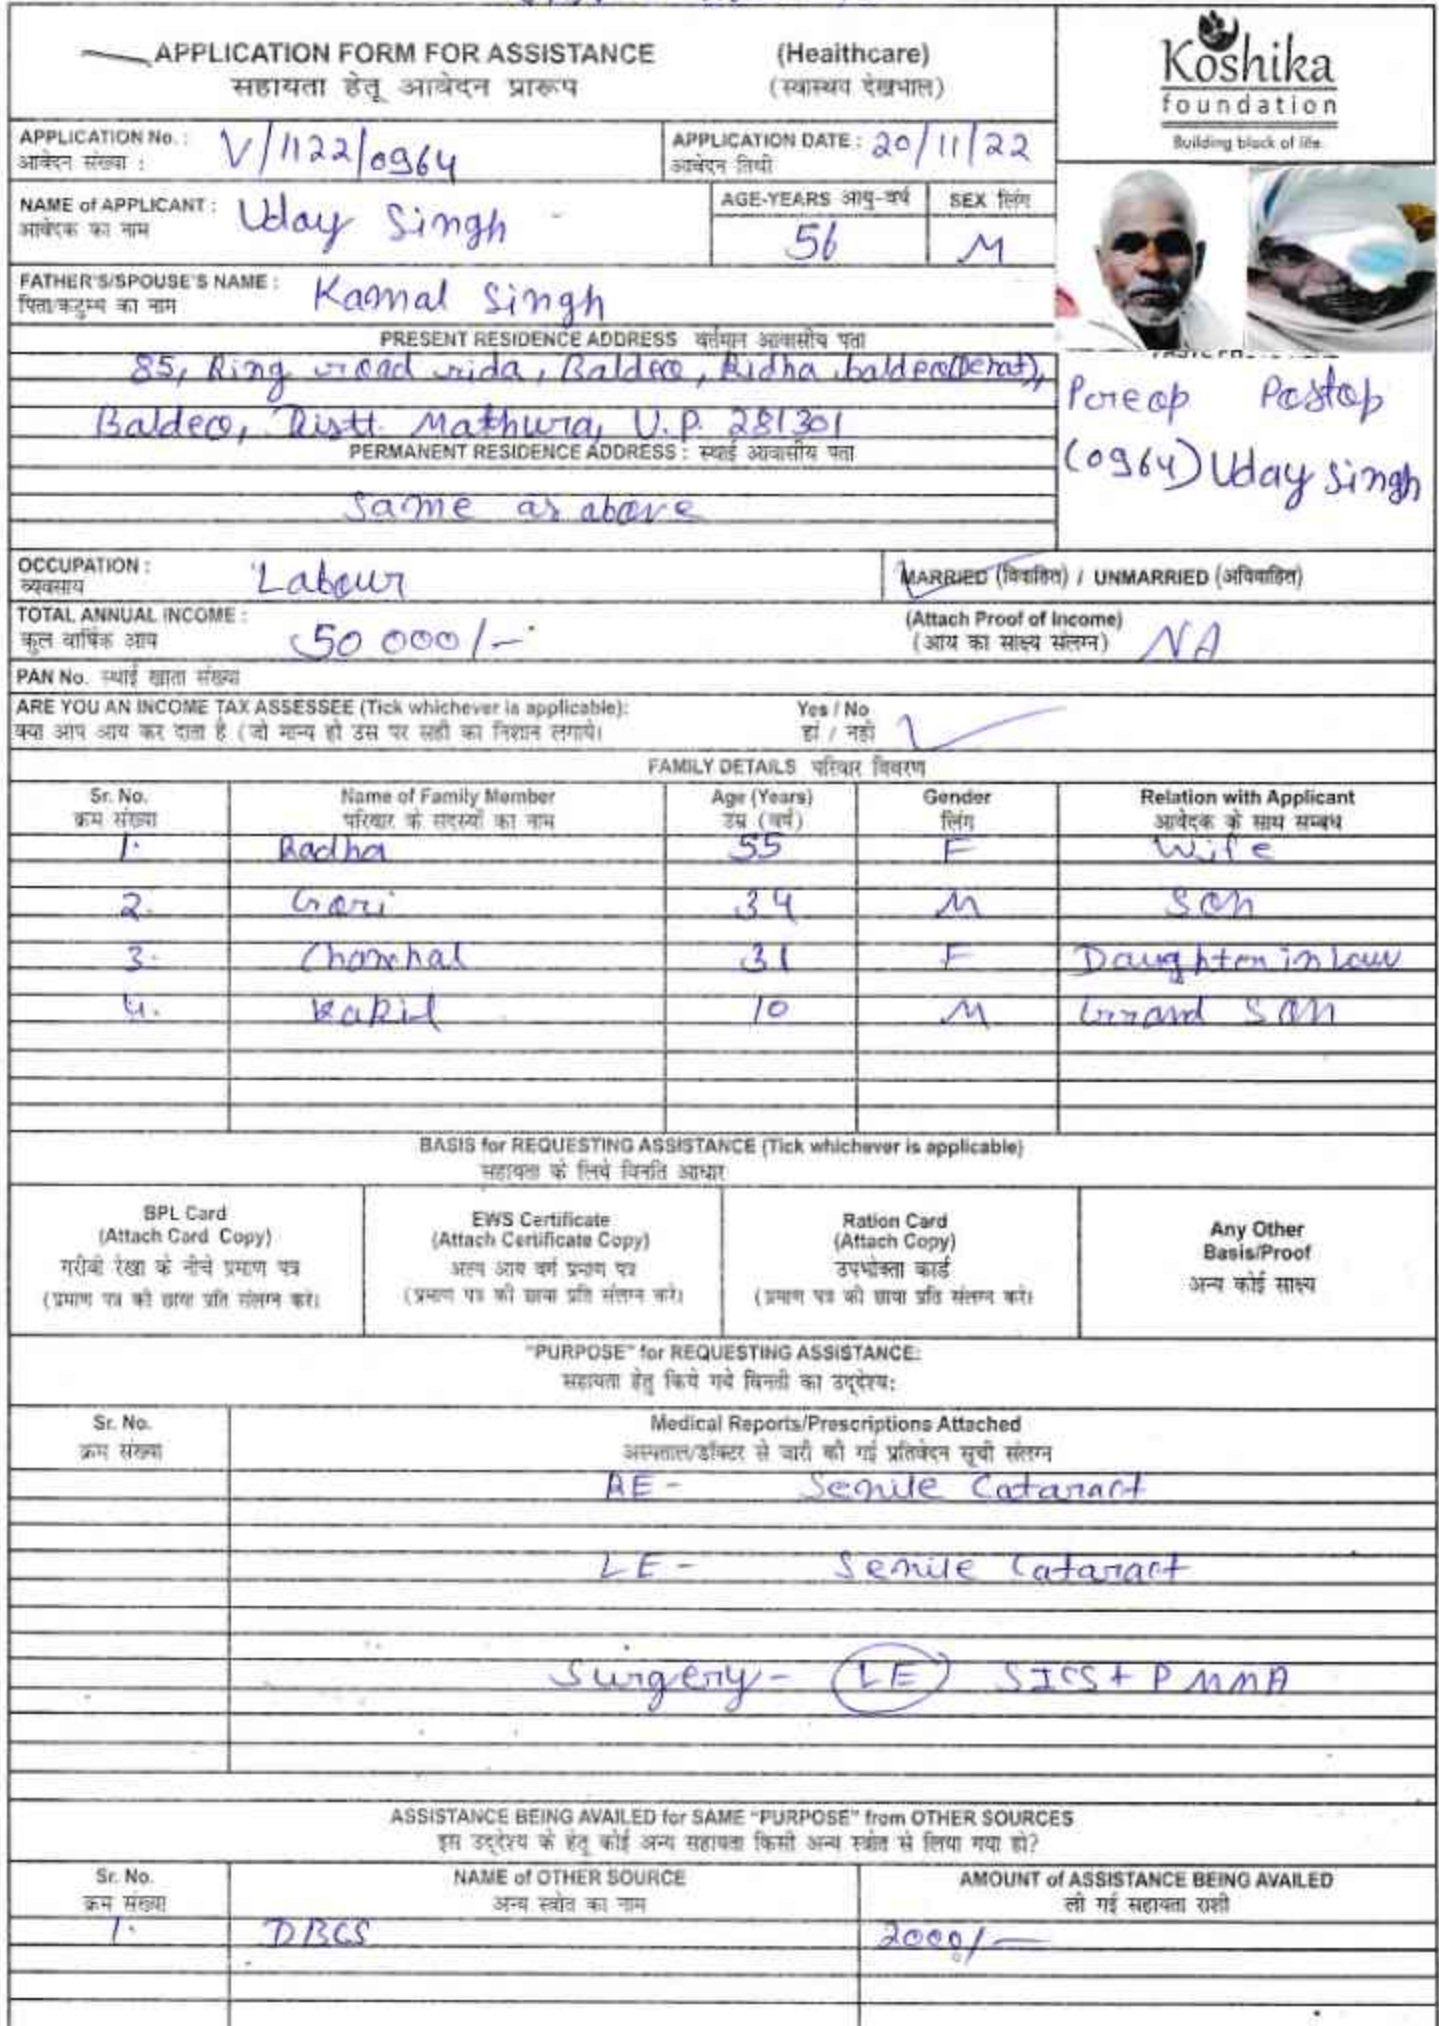 APPLICATION FORM FOR ASSISTANCE (Healthcare)
सहायता हेतू आवेदन प्रारूप (स्वास्थय देखभाल)
Koshika
foundation
Building block of life
APPLICATION No. : V/1122/0964 APPLICATION DATE : 20/11/22
आवेदन संख्या : आवेदन तिथी
NAME of APPLICANT : Uday Singh AGE-YEARS आयु-वर्ष 56 SEX लिंग M
आवेदक का नाम
FATHER'S/SPOUSE'S NAME : Kamal Singh
पिता/कटुम्ब का नाम
PRESENT RESIDENCE ADDRESS वर्तमान आवासीय पता
85, Ring road rida, Baldeo, Ridha baldeo(Derat),
Baldeo, Distt. Mathura, U.P. 281301
Preop Postop
(0964) Uday Singh
PERMANENT RESIDENCE ADDRESS : स्थाई आवासीय पता
Same as above
OCCUPATION : Labour MARRIED (विवाहित) / UNMARRIED (अविवाहित)
व्यवसाय
TOTAL ANNUAL INCOME : 50 000/- (Attach Proof of Income) NA
कुल वार्षिक आय (आय का साक्ष्य संलग्न)
PAN No. स्थाई खाता संख्या
ARE YOU AN INCOME TAX ASSESSEE (Tick whichever is applicable): Yes / No
क्या आप आय कर दाता है (जो मान्य हो उस पर सही का निशान लगाये। हां / नही
FAMILY DETAILS परिवार विवरण
Sr. No. Name of Family Member Age (Years) Gender Relation with Applicant
क्रम संख्या परिवार के सदस्यों का नाम उम्र (वर्ष) लिंग आवेदक के साथ सम्बध
1. Radha 55 F Wife
2. Gori 34 M Son
3. Chanchal 31 F Daughter in law
4. Kapil 10 M Grand Son
BASIS for REQUESTING ASSISTANCE (Tick whichever is applicable)
सहायता के लिये विनति आधार
BPL Card
(Attach Card Copy)
गरीबी रेखा के नीचे प्रमाण पत्र
(प्रमाण पत्र की छाया प्रति संलग्न करे।
EWS Certificate
(Attach Certificate Copy)
अल्प आय वर्ग प्रमाण पत्र
(प्रमाण पत्र की छाया प्रति संलग्न करे।
Ration Card
(Attach Copy)
उपभोक्ता कार्ड
(प्रमाण पत्र की छाया प्रति संलग्न करे।
Any Other
Basis/Proof
अन्य कोई साक्ष्य
"PURPOSE" for REQUESTING ASSISTANCE:
सहायता हेतु किये गये विनती का उद्देश्य:
Sr. No. Medical Reports/Prescriptions Attached
क्रम संख्या अस्पताल/डॉक्टर से जारी की गई प्रतिवेदन सूची संलग्न
RE - Senile Cataract
LE - Senile Cataract
Surgery - LE SICS + PMMA
ASSISTANCE BEING AVAILED for SAME "PURPOSE" from OTHER SOURCES
इस उद्देश्य के हेतू कोई अन्य सहायता किसी अन्य स्त्रोत से लिया गया हो?
Sr. No. NAME of OTHER SOURCE AMOUNT of ASSISTANCE BEING AVAILED
क्रम संख्या अन्य स्त्रोत का नाम ली गई सहायता राशी
1. DBCS 2000/-